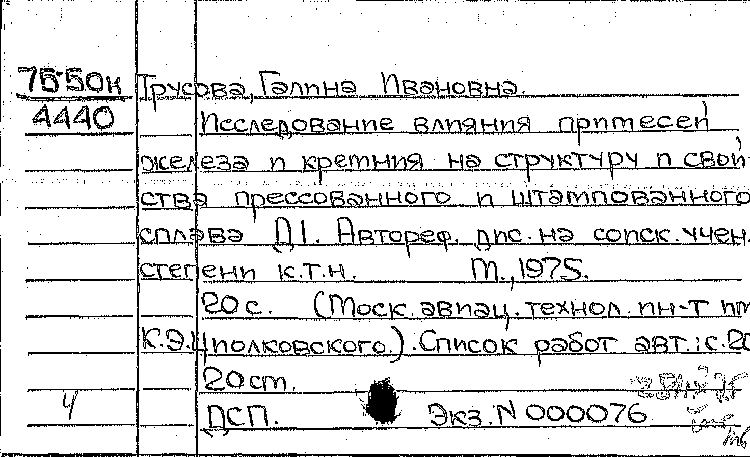 7550н Трусова, Галина Ивановна.
4440 Исследование влияния примесей
железа и кремния на структуру и свой
ства прессованного и штампованного
сплава Д1. Автореф. дис. на соиск. учен.
степени к.т.н. М., 1975.
20 с. (Моск. авиац. технол. ин-т им
К.Э.Циолковского.). Список работ авт.: с. 20
20 ст.
4 ДСП. Экз. N 000076